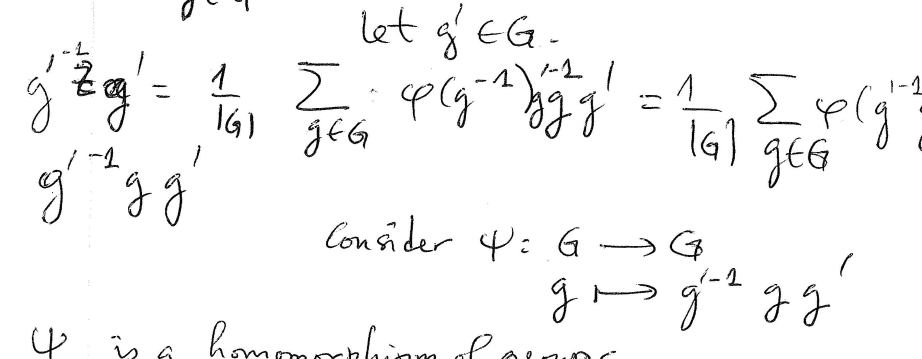 let g' ∈ G.
g'^{-1} z g' = 1/|G| ∑_{g∈G} φ(g^{-1}) g'^{-1} g g' = 1/|G| ∑_{g∈G} φ(g'^{-1}
g'^{-1} g g'
Consider ψ: G → G
g ↦ g'^{-1} g g'
ψ is a homomorphism of groups